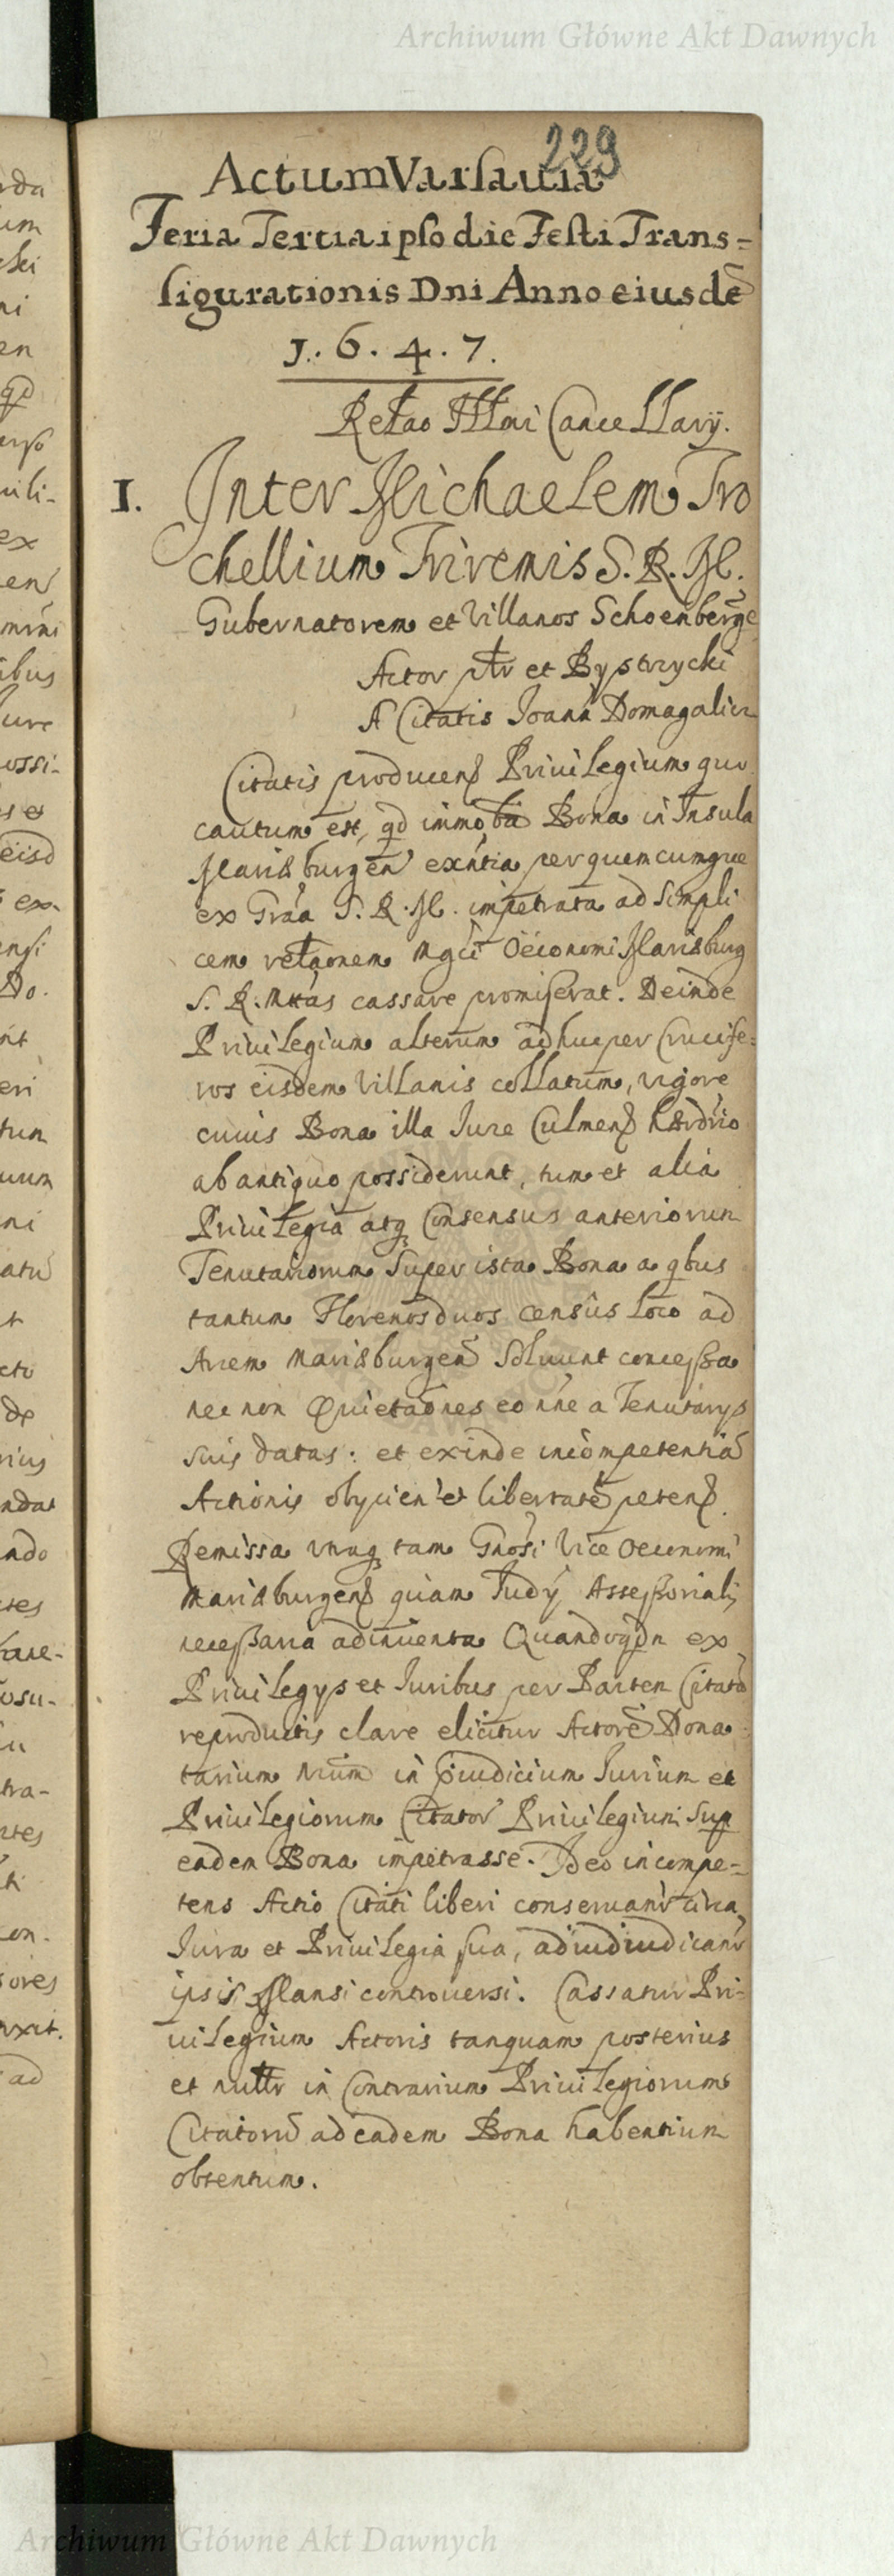 Archiwum Główne Akt Dawnych
229
Actum Varsauia
Feria Tertia ipso die Festi Trans-
figurationis Dni Anno eiusdē
1. 6. 4. 7.
Relao Illmi Cancellarij.
1. Inter Michaelem Tro
chellium Triremis S. R. M.
Gubernatorem et Villanos Schoenberge
Actor ptr et Bystrzycki
A Citatis Joann Domagalicz
Citatis producens Priuilegium quo
cautum est, qd immobia Bona in Insula
Mariæburgen exntia per quemcumque
ex Graa S. R. M. impetrata ad simpli
cem relaonem Mgci Oeconomi Mariæburg
S. R. Mttas cassare promiserat. Deinde
Priuilegium alterum adhuc per Crucife=
ros eisdem Villanis collatum, vigore
cuius Bona illa Jure Culmens hærdrio
ab antiquo possiderunt, tum et alia
Priuilegia atq Consensus anteriorum
Tenutariorum super ista Bona a qbus
tantum Florenos duos censûs loco ad
Arcem Mariæburgen Soluunt concessa
nec non Quietaones eo nne a Tenutarys
suis datas: et exinde incompetentiā
Actionis obijcien et libertatē petens.
Remissa vtraq tam Gnosi Vice Oeconomi
Mariæburgens quam Judy Assessorialis
necessaria adinuenta Quandoqdn ex
Priuilegys et Juribus per Partem Citatā
reproductis clare elicitur Actorē Dona
tarium nrum in piudicium Jurium et
Priuilegiorum Citator Priuilegium sup
eadem Bona impetrasse. Ideo incompe=
tens Actio Citati liberi conseruantr circa
Jura et Priuilegia sua, adiudiudicantr
ipsis Mansi controuersi. Cassatur Pri-
uilegium Actoris tanquam posterius
et nulltr in Contrarium Priuilegiorum
Citatorū ad eadem Bona habentium
obtentum.
Archiwum Główne Akt Dawnych